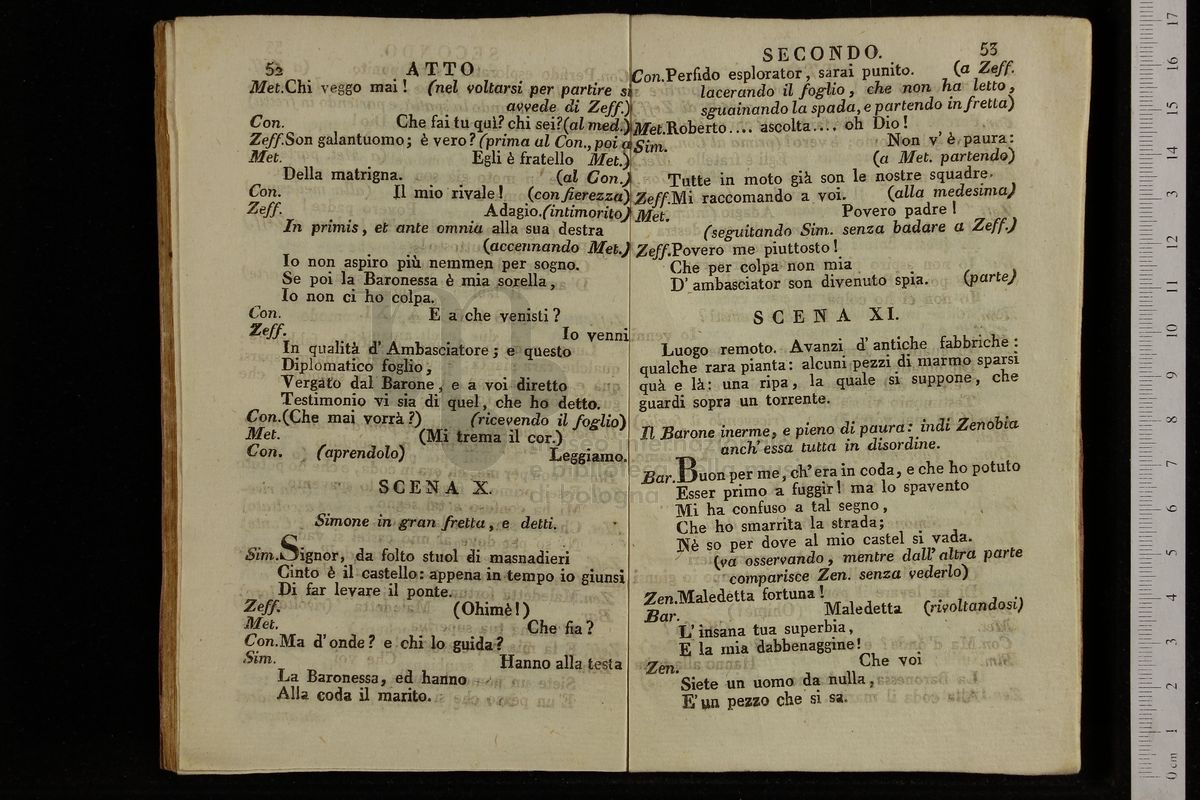 52 ATTO
Met.Chi veggo mai! (nel voltarsi per partire si
avvede di Zeff.)
Con. Che fai tu quì? chi sei?(al med.)
Zeff.Son galantuomo; è vero?(prima al Con., poi a
Met. Egli è fratello Met.)
Della matrigna. (al Con.)
Con. Il mio rivale! (con fierezza)
Zeff. Adagio.(intimorito)
In primis, et ante omnia alla sua destra
(accennando Met.)
Io non aspiro più nemmen per sogno.
Se poi la Baronessa è mia sorella,
Io non ci ho colpa.
Con. E a che venisti?
Zeff. Io venni
In qualità d' Ambasciatore; e questo
Diplomatico foglio,
Vergato dal Barone, e a voi diretto
Testimonio vi sia di quel, che ho detto.
Con.(Che mai vorrà?) (ricevendo il foglio)
Met. (Mi trema il cor.)
Con. (aprendolo) Leggiamo.
SCENA X.
Simone in gran fretta, e detti.
Sim.Signor, da folto stuol di masnadieri
Cinto è il castello: appena in tempo io giunsi
Di far levare il ponte.
Zeff. (Ohimè!)
Met. Che fia?
Con.Ma d'onde? e chi lo guida?
Sim. Hanno alla testa
La Baronessa, ed hanno
Alla coda il marito.
SECONDO. 53
Con.Perfido esplorator, sarai punito. (a Zeff.
lacerando il foglio, che non ha letto,
sguainando la spada, e partendo in fretta)
Met.Roberto.... ascolta.... oh Dio!
Sim. Non v'è paura:
(a Met. partendo)
Tutte in moto già son le nostre squadre.
Zeff.Mi raccomando a voi. (alla medesima)
Met. Povero padre!
(seguitando Sim. senza badare a Zeff.)
Zeff.Povero me piuttosto!
Che per colpa non mia
D' ambasciator son divenuto spia. (parte)
SCENA XI.
Luogo remoto. Avanzi d' antiche fabbriche:
qualche rara pianta: alcuni pezzi di marmo sparsi
quà e là: una ripa, la quale si suppone, che
guardi sopra un torrente.
Il Barone inerme, e pieno di paura: indi Zenobia
anch' essa tutta in disordine.
Bar.Buon per me, ch'era in coda, e che ho potuto
Esser primo a fuggir! ma lo spavento
Mi ha confuso a tal segno,
Che ho smarrita la strada;
Nè so per dove al mio castel si vada.
(va osservando, mentre dall' altra parte
comparisce Zen. senza vederlo)
Zen.Maledetta fortuna!
Bar. Maledetta (rivoltandosi)
L' insana tua superbia,
E la mia dabbenaggine!
Zen. Che voi
Siete un uomo da nulla,
E' un pezzo che si sa.